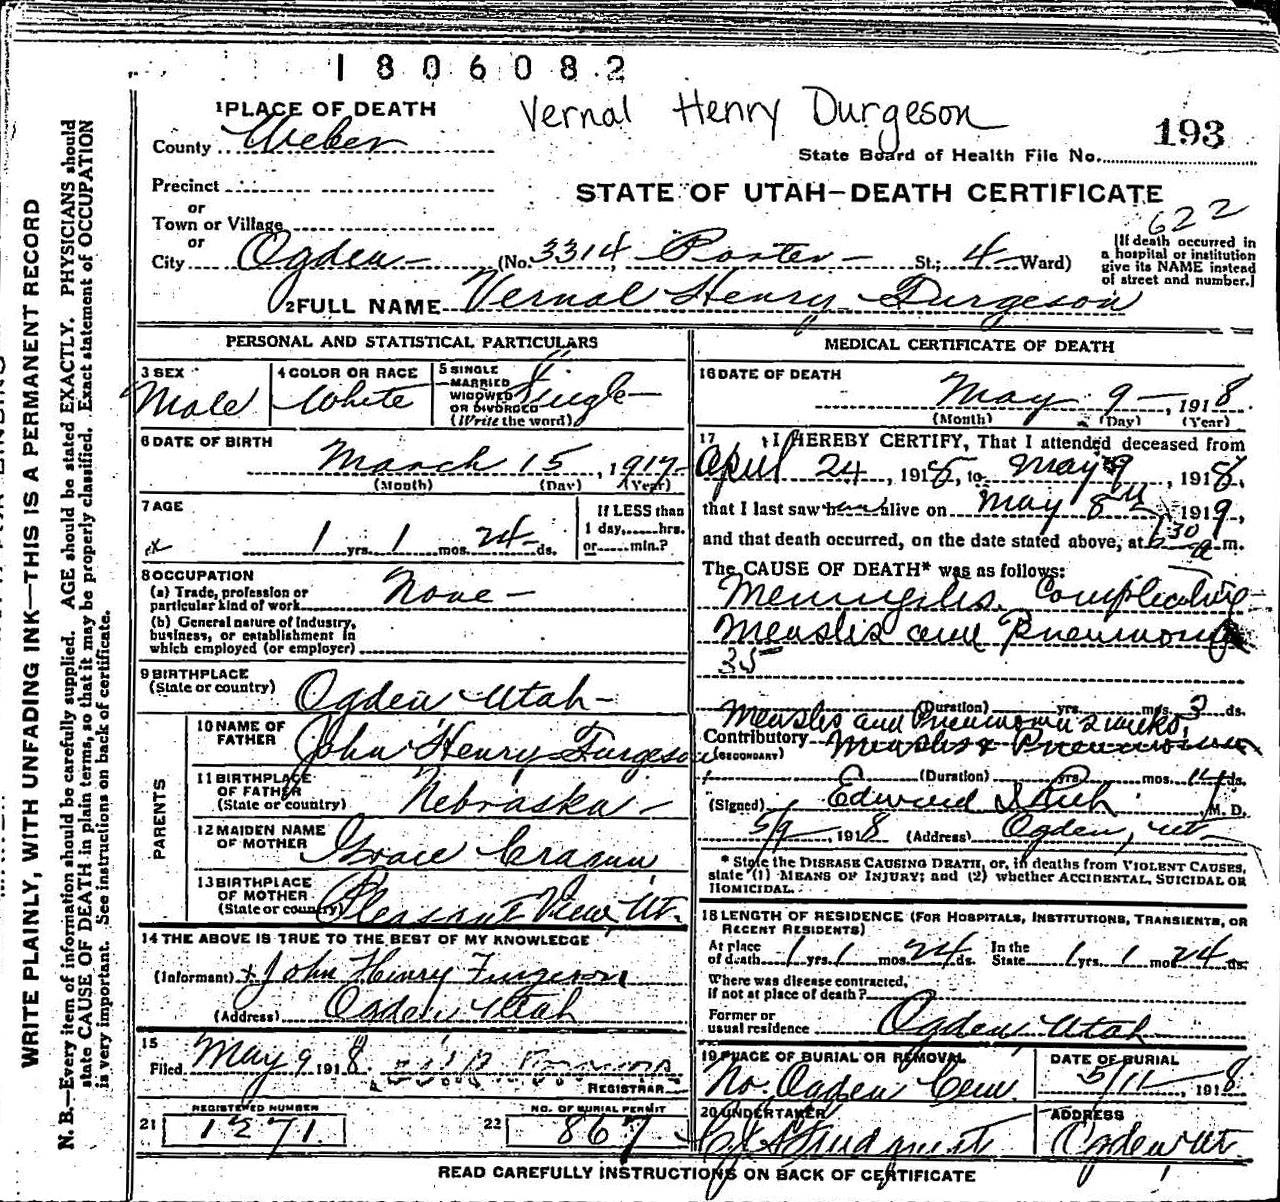 1806082
Vernal Henry Durgeson
1 PLACE OF DEATH
193
County Weber
State Board of Health File No.
Precinct
STATE OF UTAH—DEATH CERTIFICATE
or
Town or Village
622
or
City Ogden (No. 3314 Porter St.; 4 Ward)
[If death occurred in
a hospital or institution
give its NAME instead
of street and number.]
2 FULL NAME Vernal Henry Furgeson
PERSONAL AND STATISTICAL PARTICULARS
3 SEX
Male
4 COLOR OR RACE
White
5 SINGLE
MARRIED
WIDOWED
OR DIVORCED
(Write the word)
Single
6 DATE OF BIRTH
March 15, 1917
(Month) (Day) (Year)
7 AGE
1 yrs. 1 mos. 24 ds.
If LESS than
1 day,.....hrs.
or.....min.?
8 OCCUPATION
(a) Trade, profession or
particular kind of work None
(b) General nature of industry,
business, or establishment in
which employed (or employer)
9 BIRTHPLACE
(State or country) Ogden Utah
PARENTS
10 NAME OF
FATHER John Henry Furgeson
11 BIRTHPLACE
OF FATHER
(State or country) Nebraska
12 MAIDEN NAME
OF MOTHER Grace Cragun
13 BIRTHPLACE
OF MOTHER
(State or country) Pleasant View, Ut.
14 THE ABOVE IS TRUE TO THE BEST OF MY KNOWLEDGE
(Informant) John Henry Furgeson
(Address) Ogden Utah
15
Filed May 9 1918
REGISTRAR
21 REGISTERED NUMBER
1271
22 NO. OF BURIAL PERMIT
867
MEDICAL CERTIFICATE OF DEATH
16 DATE OF DEATH
May 9, 1918
(Month) (Day) (Year)
17 I HEREBY CERTIFY, That I attended deceased from
April 24, 1918, to May 9, 1918,
that I last saw him alive on May 8th 1919,
and that death occurred, on the date stated above, at 630 a m.
The CAUSE OF DEATH* was as follows:
Meningitis, Complicating
Measles and Pneumonia
35
(Duration) yrs. mos. 3 ds.
Measles and Pneumonia 2 weeks
Contributory Measles & Pneumonia
(SECONDARY)
(Duration) yrs. mos. 14 ds.
(Signed) Edward I Rich M. D.
5/9, 1918 (Address) Ogden, Ut
* State the DISEASE CAUSING DEATH, or, in deaths from VIOLENT CAUSES,
state (1) MEANS OF INJURY; and (2) whether ACCIDENTAL, SUICIDAL OR
HOMICIDAL.
18 LENGTH OF RESIDENCE (FOR HOSPITALS, INSTITUTIONS, TRANSIENTS, OR
RECENT RESIDENTS)
At place
of death 1 yrs. 1 mos. 24 ds.
In the
State 1 yrs. 1 mos. 24 ds.
Where was disease contracted,
if not at place of death?
Former or
usual residence Ogden, Utah
19 PLACE OF BURIAL OR REMOVAL
No. Ogden Cem.
DATE OF BURIAL
5/11, 1918
20 UNDERTAKER
ADDRESS
Ogden Ut.
READ CAREFULLY INSTRUCTIONS ON BACK OF CERTIFICATE
WRITE PLAINLY, WITH UNFADING INK—THIS IS A PERMANENT RECORD
N. B.—Every item of information should be carefully supplied. AGE should be stated EXACTLY. PHYSICIANS should
state CAUSE OF DEATH in plain terms, so that it may be properly classified. Exact statement of OCCUPATION
is very important. See instructions on back of certificate.